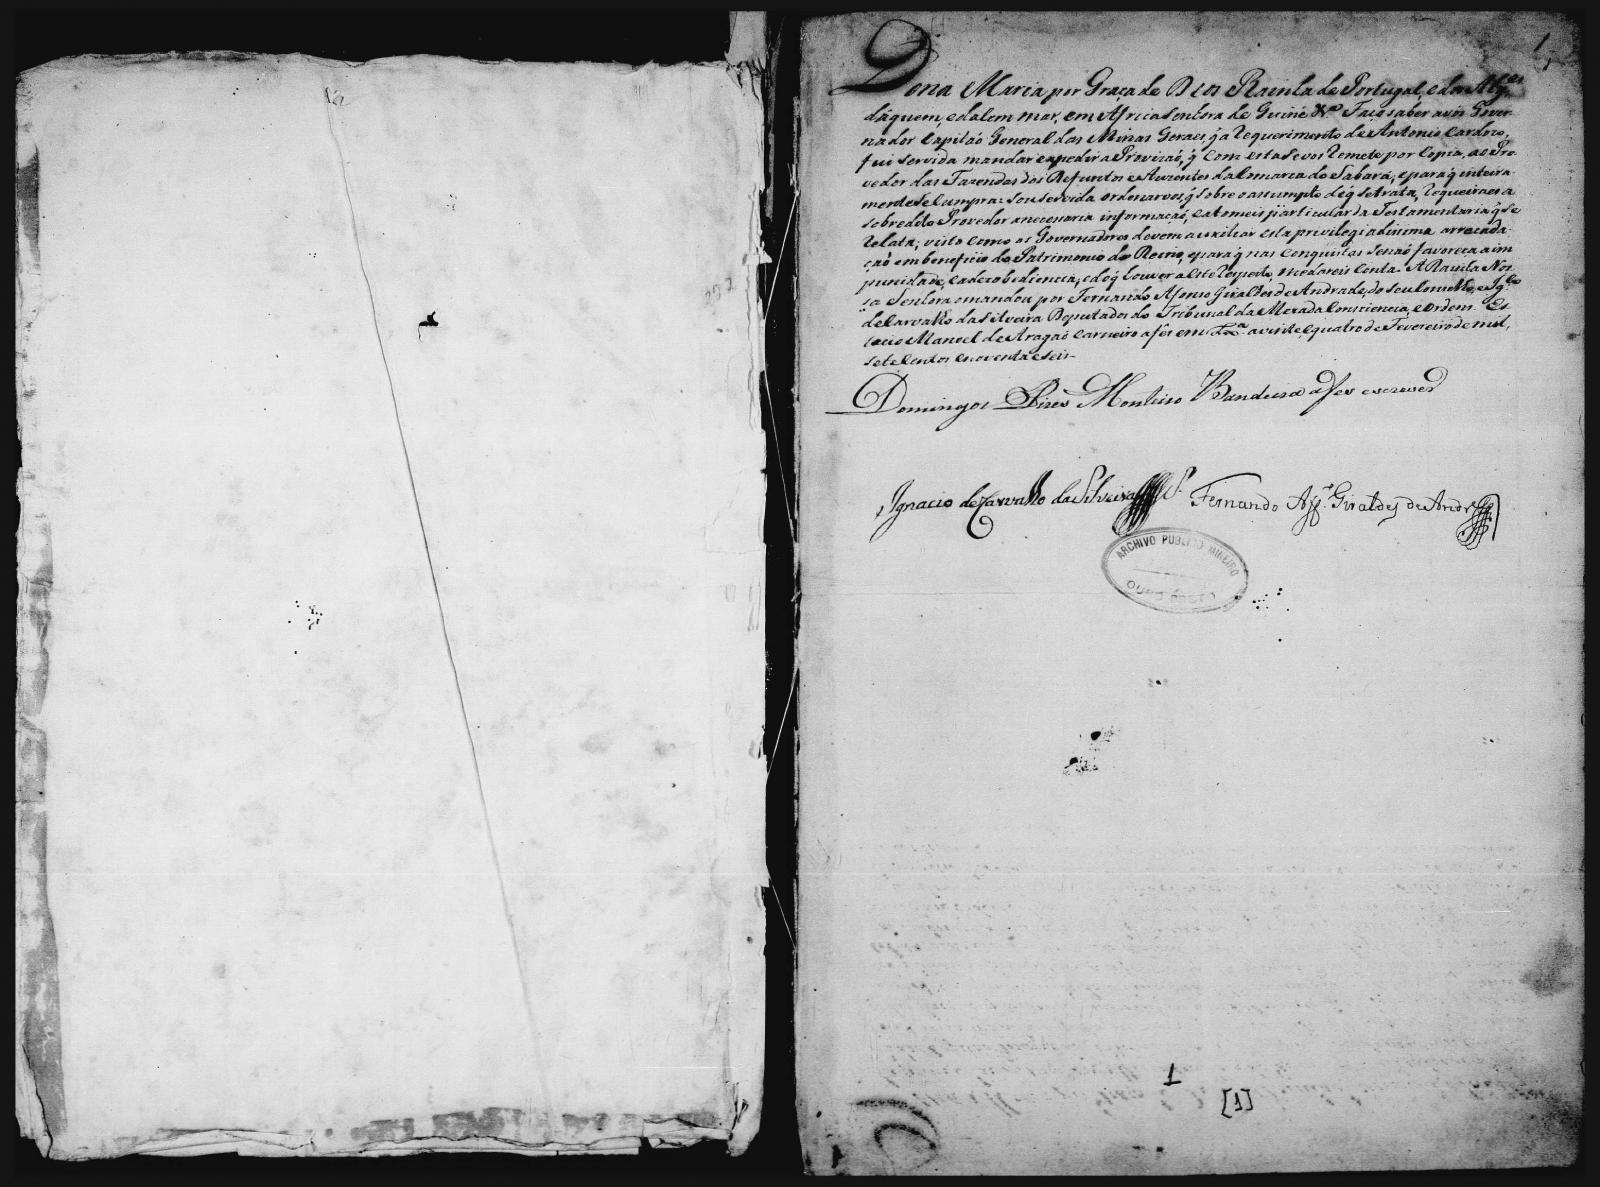 1
Dona Maria por Graça de Deos Rainha de Portugal, e dos Alg.es
dáquem, e dalem mar, em Africa Senhora de Guiné &.a Faço saber a vós Gover-
nador Capitaõ General das Minas Geraes, q̃ a Requerimento de Antonio Cardozo,
fui servida mandar expedir a Provizaõ, q̃ com esta se vos Remete por Copia, ao Pro-
vedor das Fazendas dos Defuntos e Auzentes da Comarca do Sabará; e para q̃ inteira-
mente se Cumpra: sou servida ordenarvos, q̃ sobre o assumpto de q̃ se trata, Requeiraes a
sobredito Provedor a necessaria informaçaõ, e a tomeis particular da Testamentaria q̃ se
Relata; visto como os Governadores devem auxiliar esta privilegiadissima arrecada-
çaõ em beneficio do Patrimonio do Reino, e para q̃ nas Conquistas se naõ favoreça a im-
punidade, e a dezobediencia, e do q̃ houver a este Respeito, me dareis Conta. A Rainha Nos-
sa Senhora o mandou por Fernando Afonso Giraldes de Andrade, do seu Conselho, e Ig.co
de Carvalho da Silveira Deputados do Tribunal da Meza da Consciencia, e Ordens.
Manoel de Aragaõ Carneiro a fes em Lx.a a vinte, e quatro de Fevereiro de mil,
sete Centos e noventa e seis.
Domingos Pires Monteiro Bandeira a fes escrever
Ignacio de Carvalho da Silveira Fernando Aff.o Giraldes de Andr.e
ARCHIVO PUBLICO MINEIRO
OURO PRETO
1
[1]